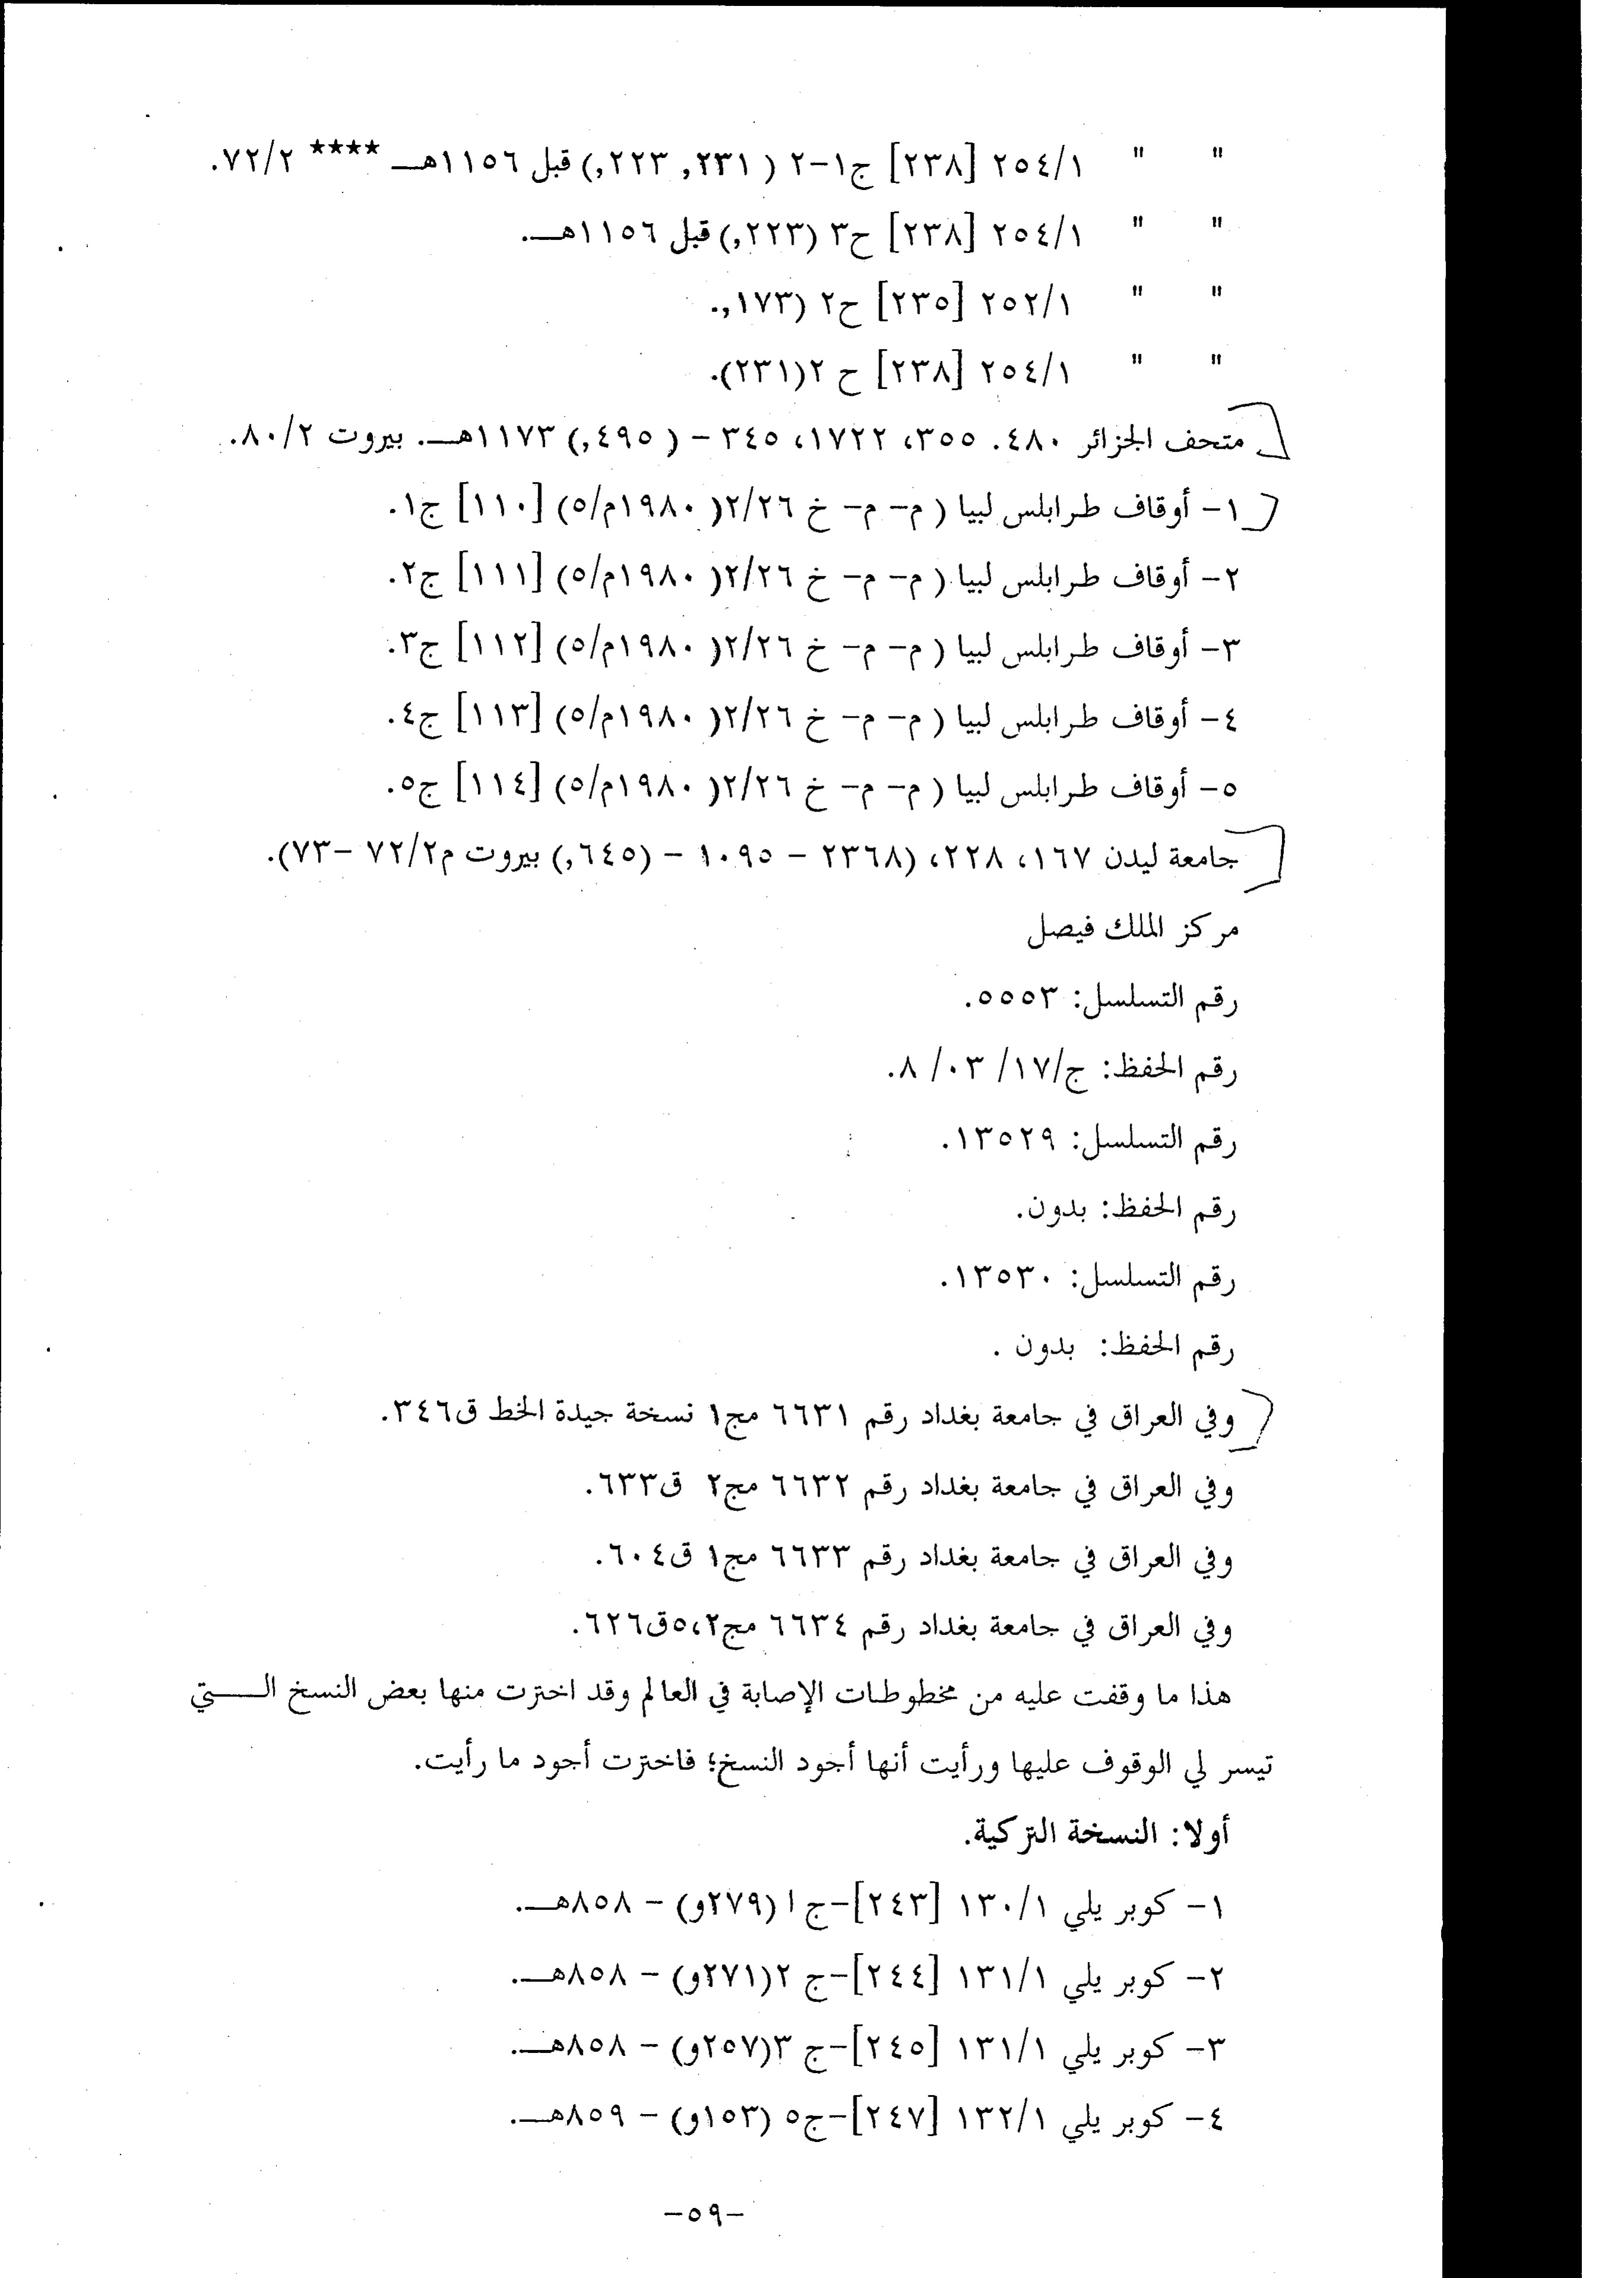 " " ٢٥٤/١ [٢٣٨] ج١-٢ ( ٢٣١, ٢٢٣,) قبل ١١٥٦هـ **** ٧٢/٢.
" " ٢٥٤/١ [٢٣٨] ح٣ (٢٢٣,) قبل ١١٥٦هـ.
" " ٢٥٢/١ [٢٣٥] ح٢ (١٧٣,.
" " ٢٥٤/١ [٢٣٨] ح ٢(٢٣١).
متحف الجزائر ٤٨٠. ٣٥٥، ١٧٢٢، ٣٤٥ - ( ٤٩٥,) ١١٧٣هـ. بيروت ٨٠/٢.
١- أوقاف طرابلس لبيا ( م- م- خ ٢/٢٦( ١٩٨٠م/٥) [١١٠] ج١.
٢- أوقاف طرابلس لبيا ( م- م- خ ٢/٢٦( ١٩٨٠م/٥) [١١١] ج٢.
٣- أوقاف طرابلس لبيا ( م- م- خ ٢/٢٦( ١٩٨٠م/٥) [١١٢] ج٣.
٤- أوقاف طرابلس لبيا ( م- م- خ ٢/٢٦( ١٩٨٠م/٥) [١١٣] ج٤.
٥- أوقاف طرابلس لبيا ( م- م- خ ٢/٢٦( ١٩٨٠م/٥) [١١٤] ج٥.
جامعة ليدن ١٦٧، ٢٢٨، (٢٣٦٨ - ١٠٩٥ - (٦٤٥,) بيروت م٧٢/٢ -٧٣).
مركز الملك فيصل
رقم التسلسل: ٥٥٥٣.
رقم الحفظ: ج/١٧/ ٠٣/ ٨.
رقم التسلسل: ١٣٥٢٩.
رقم الحفظ: بدون.
رقم التسلسل: ١٣٥٣٠.
رقم الحفظ: بدون .
وفي العراق في جامعة بغداد رقم ٦٦٣١ مج١ نسخة جيدة الخط ق٣٤٦.
وفي العراق في جامعة بغداد رقم ٦٦٣٢ مج٢ ق٦٣٣.
وفي العراق في جامعة بغداد رقم ٦٦٣٣ مج١ ق٦٠٤.
وفي العراق في جامعة بغداد رقم ٦٦٣٤ مج٥،٢ق٦٢٦.
هذا ما وقفت عليه من مخطوطات الإصابة في العالم وقد اخترت منها بعض النسخ الـــتي
تيسر لي الوقوف عليها ورأيت أنها أجود النسخ؛ فاخترت أجود ما رأيت.
أولا: النسخة التركية.
١- كوبر يلي ١٣٠/١ [٢٤٣]-ج ١ (٢٧٩و) - ٨٥٨هـ.
٢- كوبر يلي ١٣١/١ [٢٤٤]-ج ٢(٢٧١و) - ٨٥٨هـ.
٣- كوبر يلي ١٣١/١ [٢٤٥]-ج ٣(٢٥٧و) - ٨٥٨هـ.
٤- كوبر يلي ١٣٢/١ [٢٤٧]-ج٥ (١٥٣و) - ٨٥٩هـ.
-٥٩-